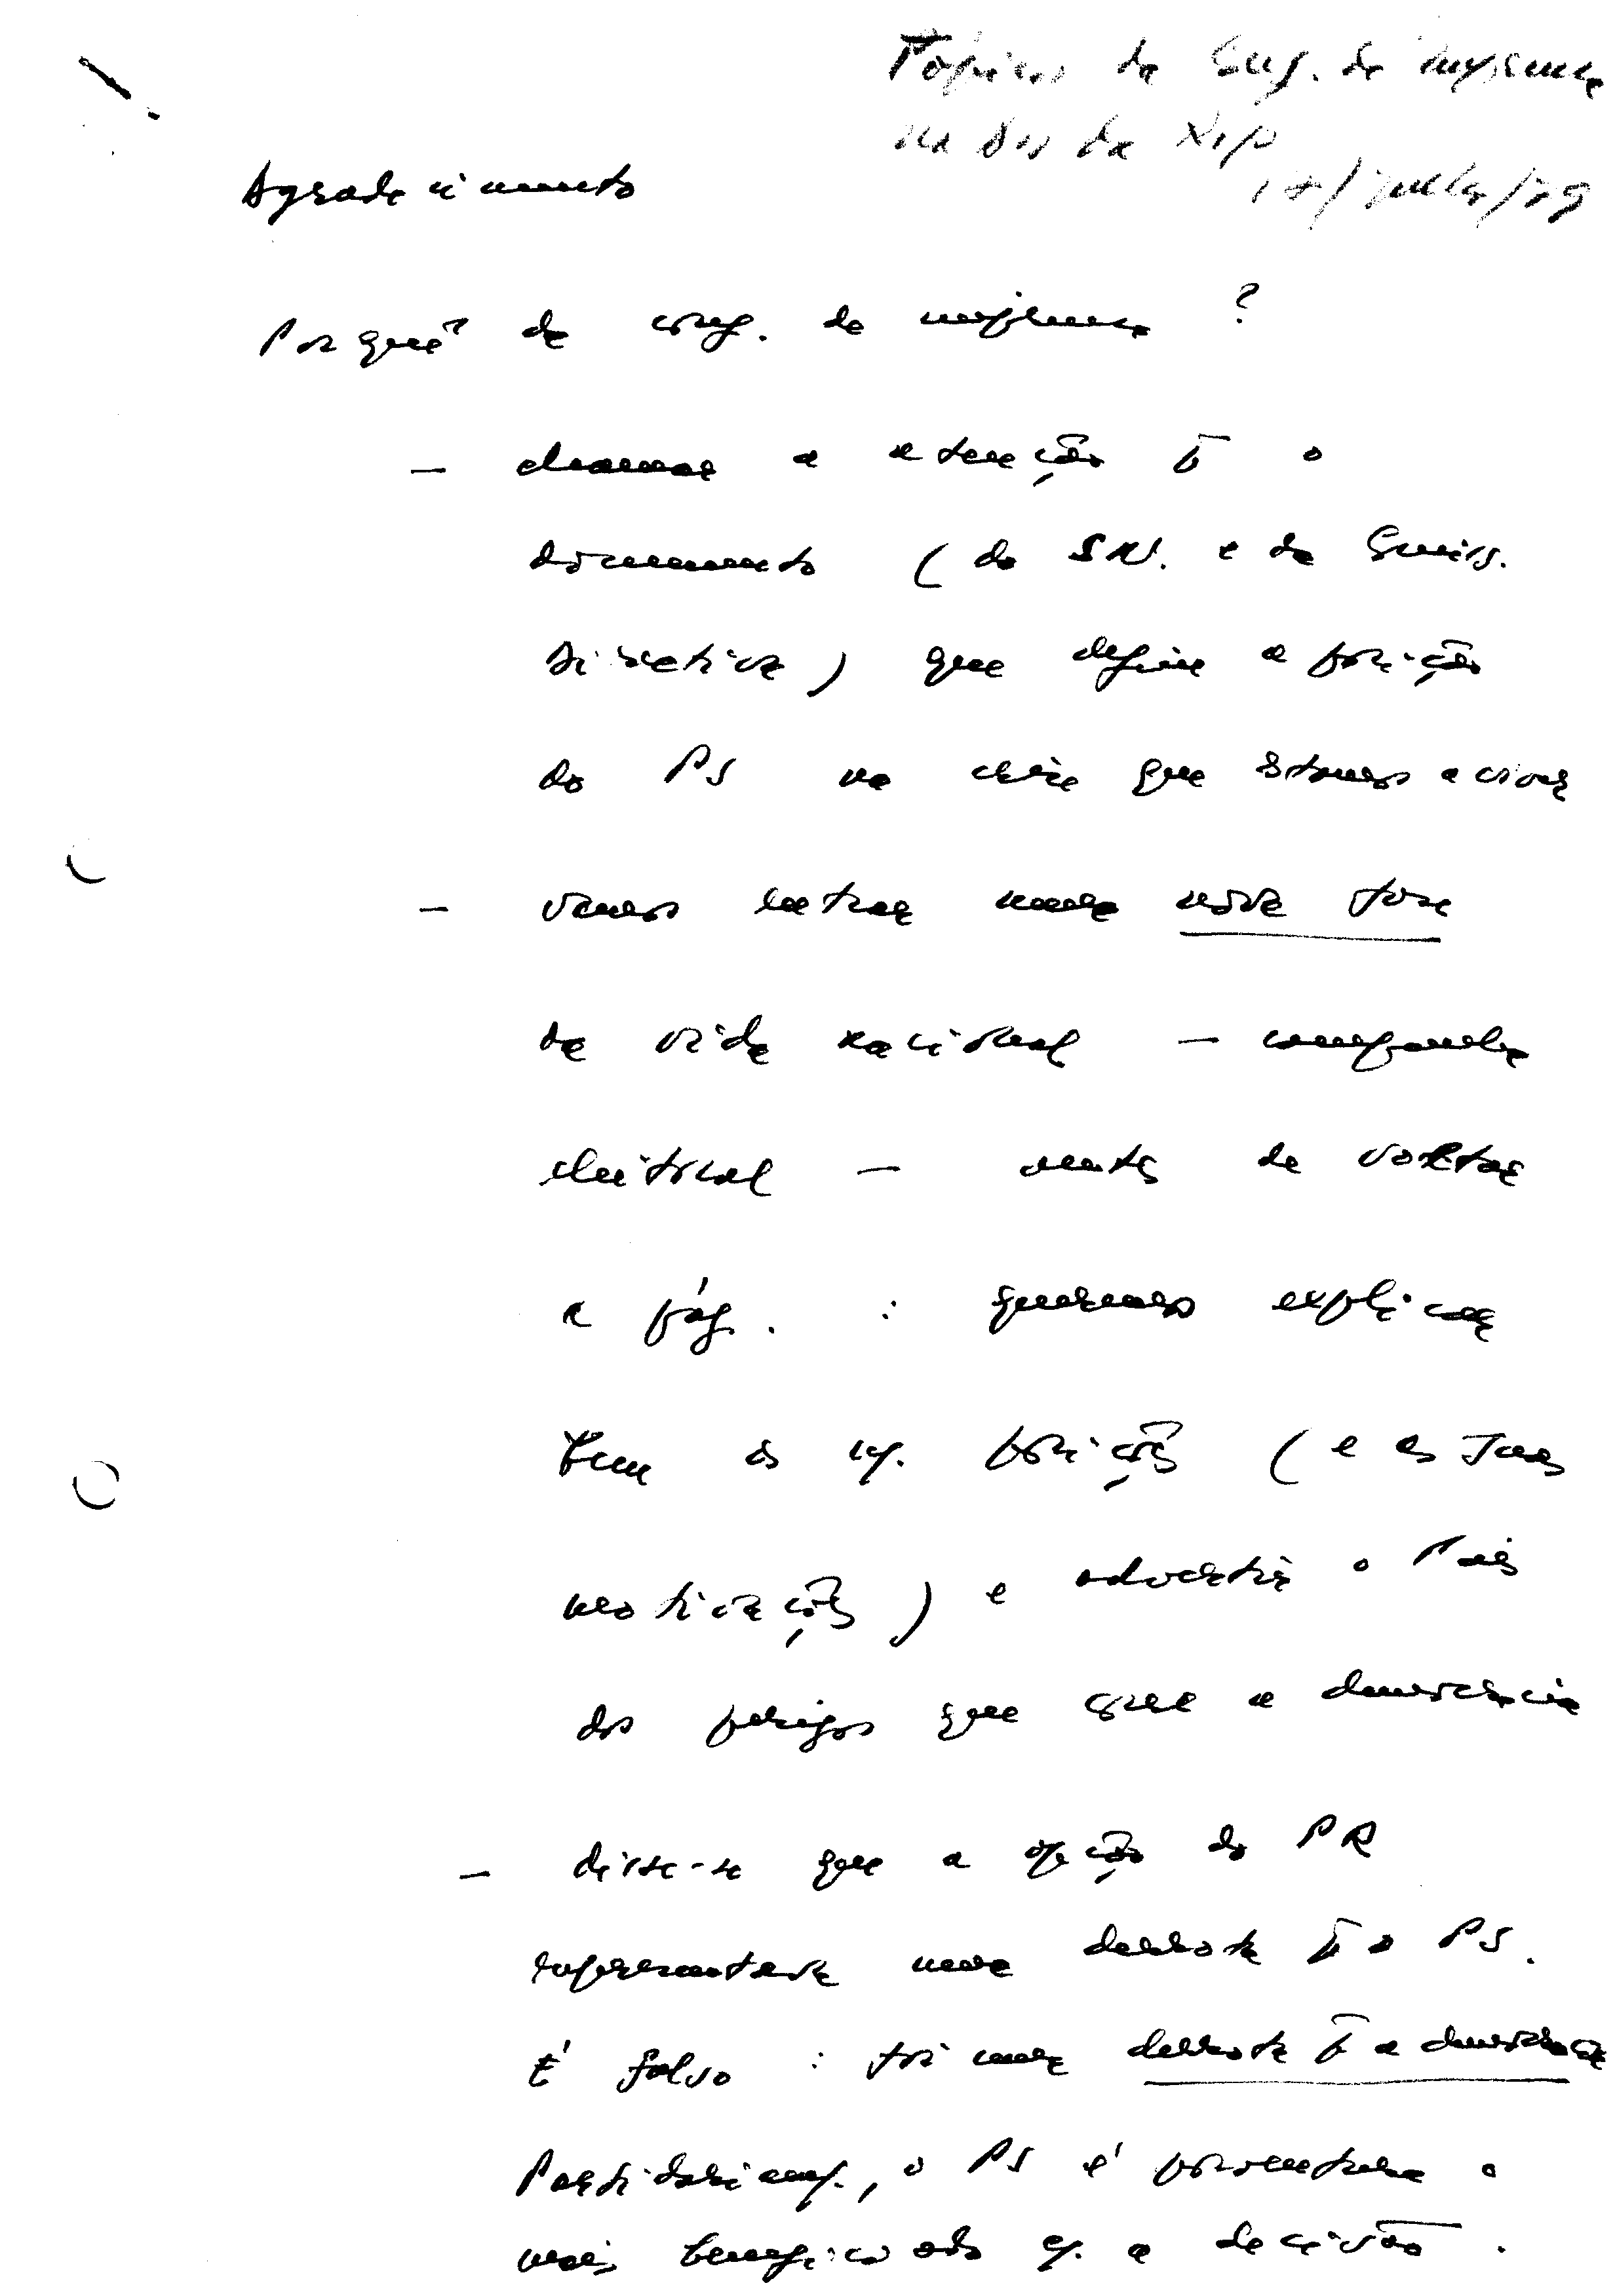 Tópicos da Conf. de imprensa
na Sede da
17/Julho/79
Agradecimento
Porquê da conf. de imprensa ?
— chamar a atenção p̄ o
documento (do S.N. e da Comiss.
Directiva) que define a posição
do PS na crise que estamos a viver
— vamos entrar numa nova fase
da vida nacional — campanha
eleitoral — antes de voltar
a pág. : queremos explicar
bem as ns. posições (e as suas
motivações) e advertir o País
dos perigos que corre a democracia
— disse-se que a opção do PR
representava uma derrota p̄ o PS.
É falso : foi uma derrota p̄ a democracia
Partidariamt., o PS é porventura o
mais beneficiado c/ a decisão.